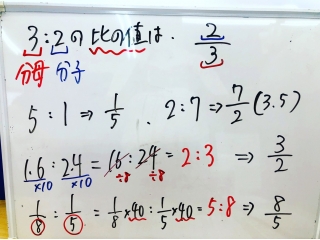 3:2の比の値は、 2/3
分母 分子
5:1⇒1/5 、 2:7⇒7/2(3.5)
1.6:2.4=16:24=2:3 ⇒ 3/2
×10 ×10 ÷8 ÷8
1/8:1/5=1/8×40:1/5×40=5:8⇒ 8/5